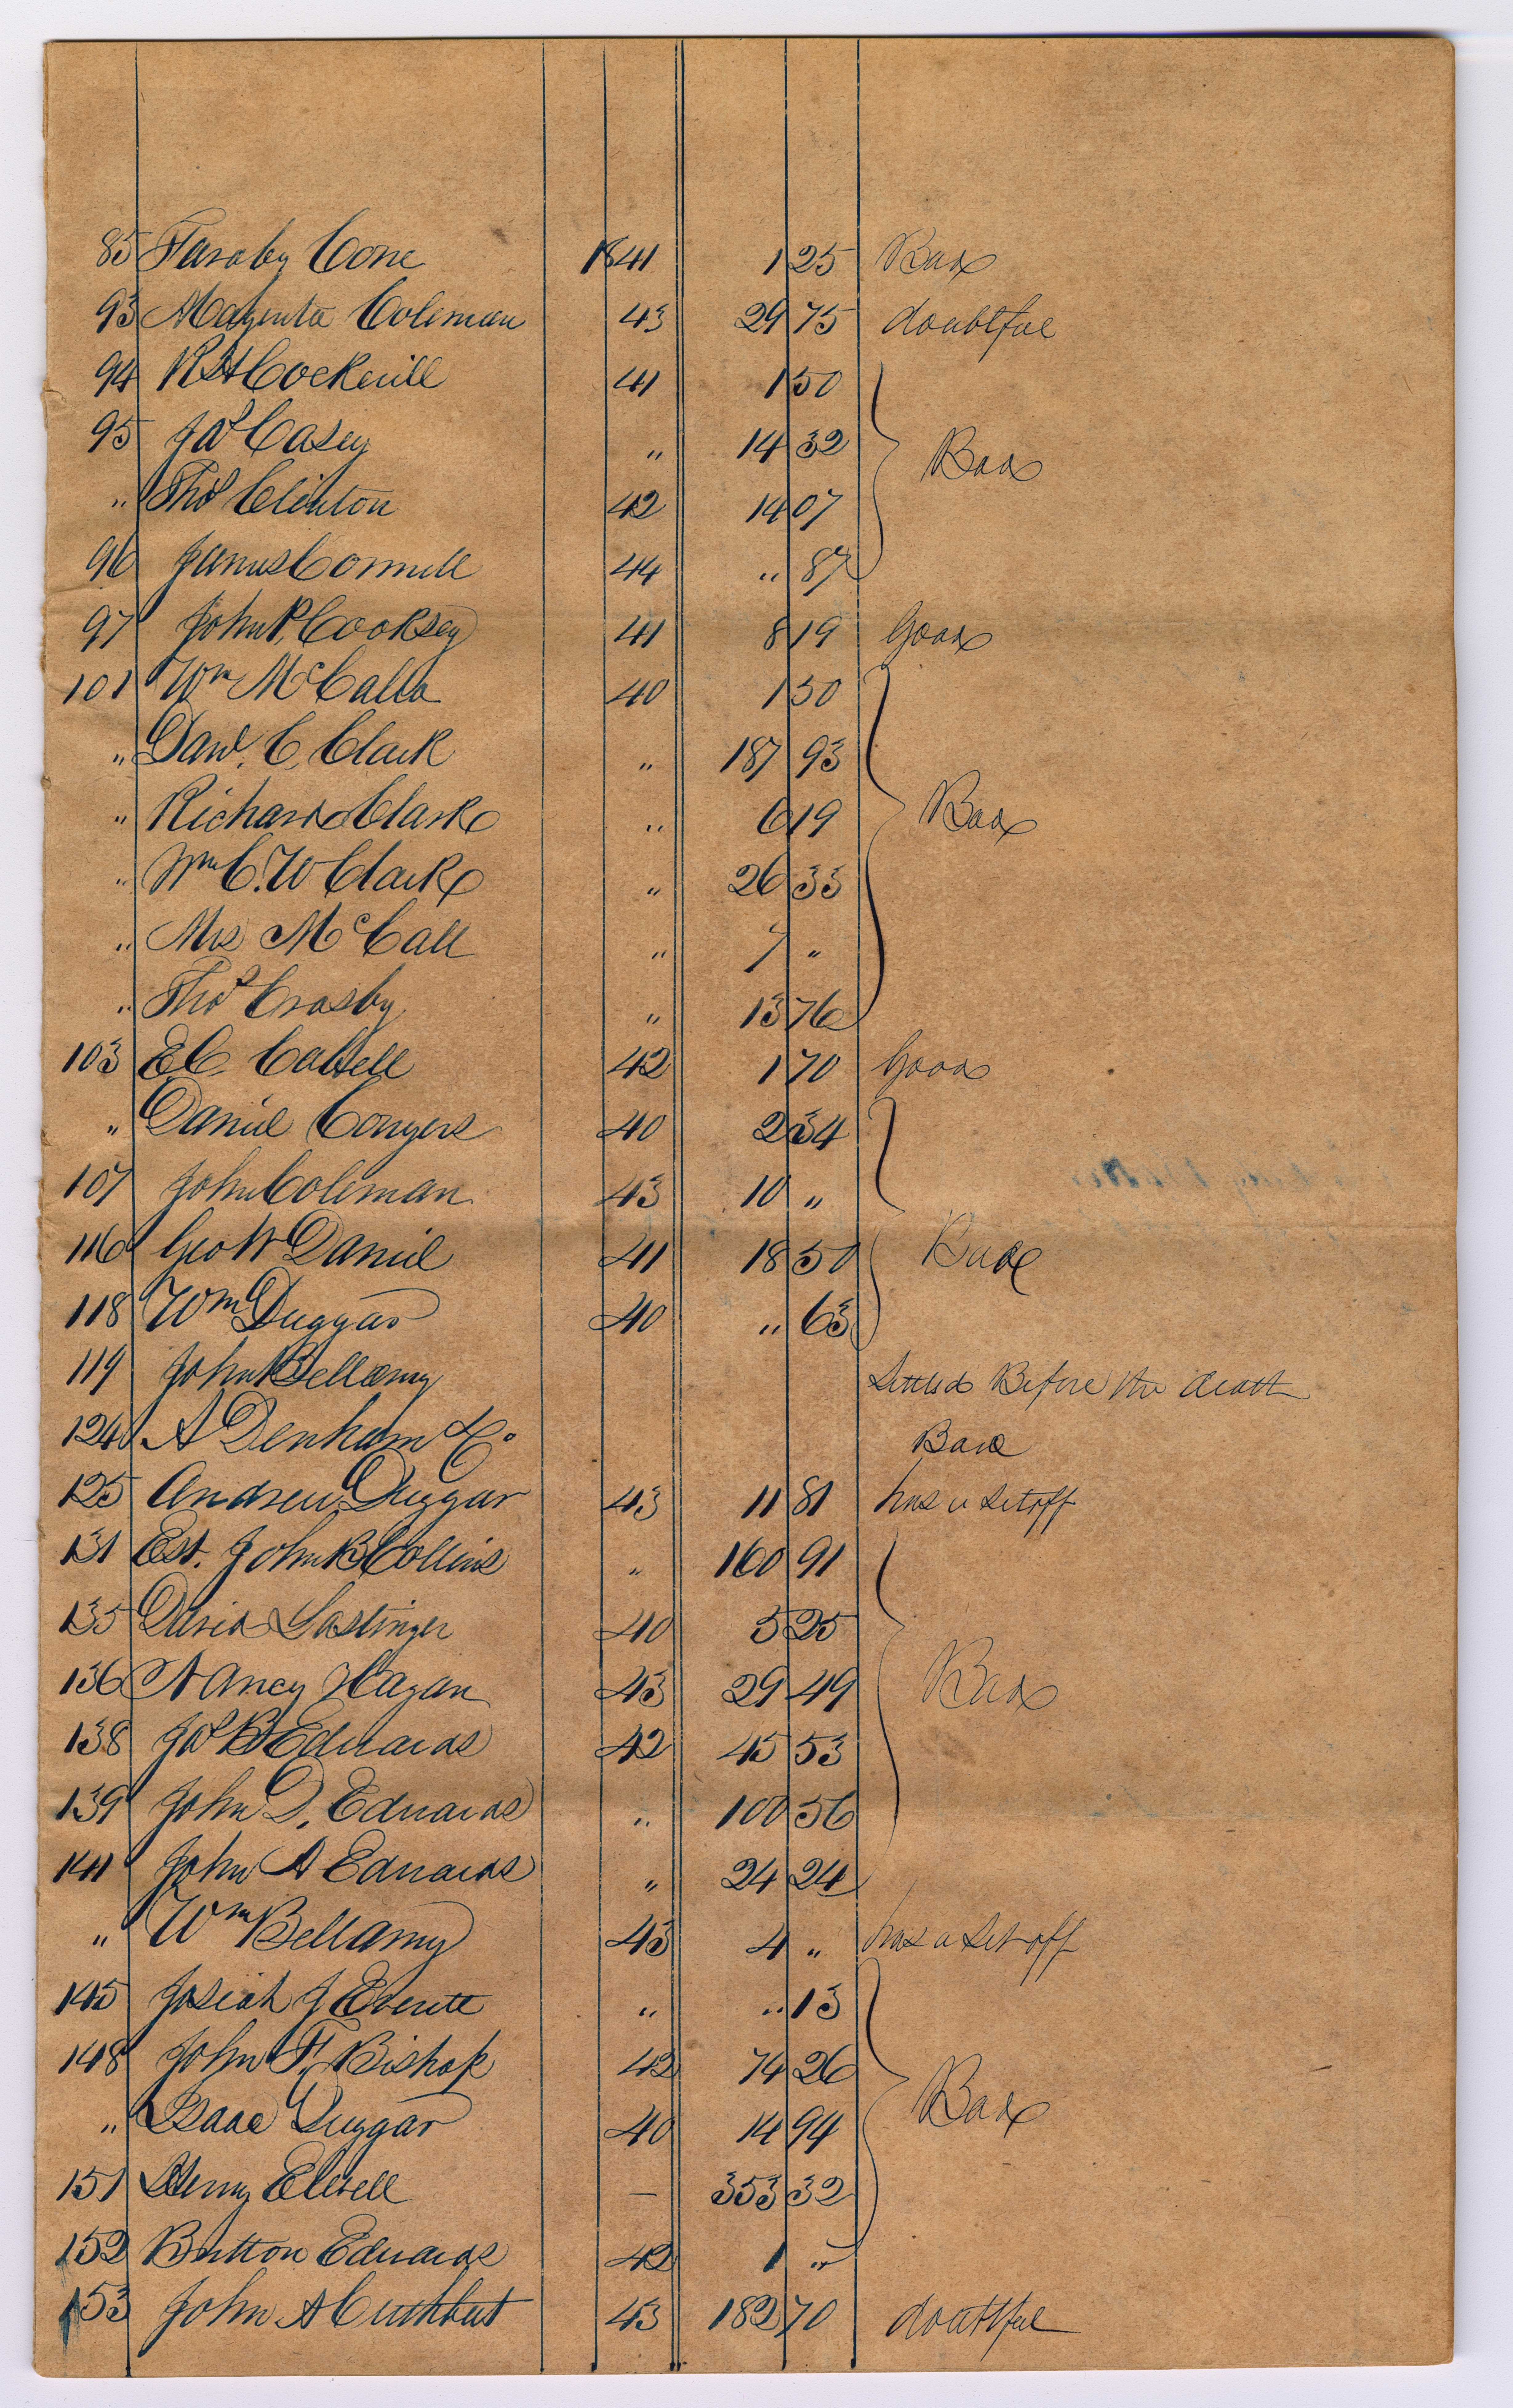 85 Faraby Cone 1841 1 25 Bad
93 Coleman 43 29 75 doubtful
94 R H Cockerill 41 1 50
95 Jas Casey " 14 32
Bad
" Thos Clinton 42 14 07
96 James Connell 44 " 87
97 John P. Cooksey 41 8 19 Good
101 Wm McCalla 40 1 50
" Danl. C. Clark " 187 93
" Richard Clark " 6 19 Bad
" Wm C. W Clark " 26 33
" Mrs McCall " 7 "
" Thos Crosby " 13 76
103 E C Cabell 42 1 70 Good
" Daniel Congers 40 2 34
107 John Coleman 43 10 "
116 Geo W Daniel 41 18 50 Bad
118 Wm Duggar 40 " 63
119 John Bellamy Settled Before the death
124 A Denham & Co Bad
125 Andrew Duggar 43 11 81 has a setoff
131 Est. John B Collins " 160 91
135 David Lastinger 40 5 25
136 Nancy Hagan 43 29 49 Bad
138 Jas B Edwards 42 45 53
139 John D. Edwards " 100 56
141 John A Edwards " 24 24
" Wm Bellamy 43 4 " has a setoff
145 Josiah J Everett " " 13
148 John F. Bishop 42 74 26
" Isaac Duggar 40 14 94 Bad
151 Henry Elwell — 353 32
152 Britton Edwards 42 1 "
153 John A Cuthbert 43 182 70 doubtful